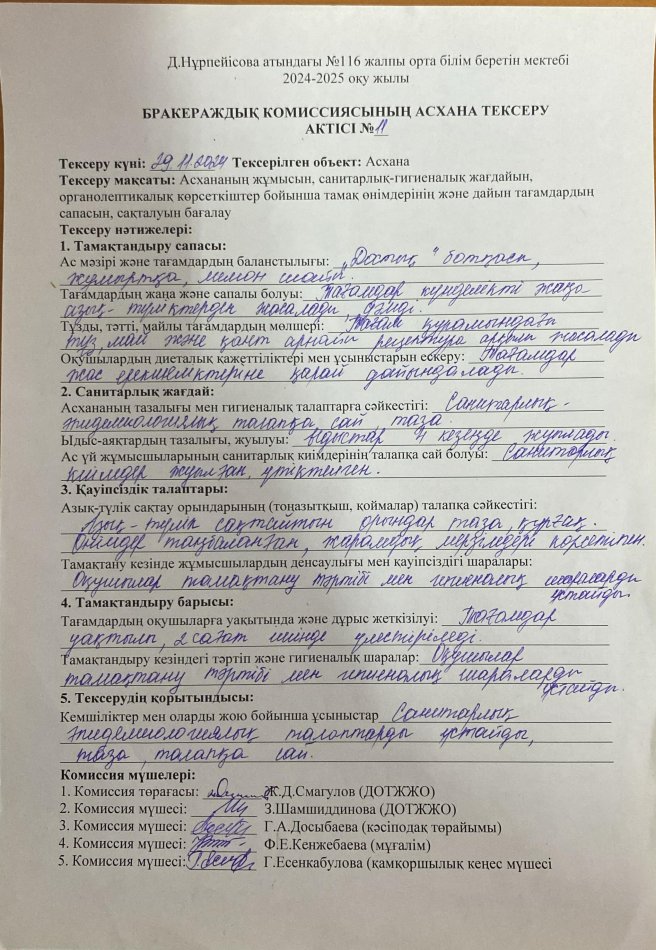 Д.Нұрпейісова атындағы №116 жалпы орта білім беретін мектебі
2024-2025 оқу жылы
БРАКЕРАЖДЫҚ КОМИССИЯСЫНЫҢ АСХАНА ТЕКСЕРУ
АКТІСІ №11
Тексеру күні: 29.11.2024 Тексерілген объект: Асхана
Тексеру мақсаты: Асхананың жұмысын, санитарлық-гигиеналық жағдайын,
органолептикалық көрсеткіштер бойынша тамақ өнімдерінің және дайын тағамдардың
сапасын, сақталуын бағалау
Тексеру нәтижелері:
1. Тамақтандыру сапасы:
Ас мәзірі және тағамдардың баланстылығы: „Достық" ботқасы,
жұмыртқа, лимон шайы.
Тағамдардың жаңа және сапалы болуы: Тағамдар күнделікті жаңа
азық-түліктерден жасалады,
Тұзды, тәтті, майлы тағамдардың мөлшері: Тағам құрамындағы
тұз, май және қант арнайы рецептура арқылы жасалады
Оқушылардың диеталық қажеттіліктері мен ұсыныстарын ескеру: Тағамдар
жас ерекшеліктеріне қарай дайындалады.
2. Санитарлық жағдай:
Асхананың тазалығы мен гигиеналық талаптарға сәйкестігі: Санитарлық-
эпидемиологиялық талапқа сай таза.
Ыдыс-аяқтардың тазалығы, жуылуы: ыдыстар 4 кезеңде жуылады.
Ас үй жұмысшыларының санитарлық киімдерінің талапқа сай болуы: Санитарлық
киімдер жуылған, үтіктелген.
3. Қауіпсіздік талаптары:
Азық-түлік сақтау орындарының (тоңазытқыш, қоймалар) талапқа сәйкестігі:
Азық-түлік сақтайтын орындар таза, құрғақ.
Өнімдер таңбаланған, жарамдық мерзімдері көрсетілген.
Тамақтану кезінде жұмысшылардың денсаулығы мен қауіпсіздігі шаралары:
Оқушылар тамақтану тәртібі мен гигиеналық шараларды
ұстайды.
4. Тамақтандыру барысы:
Тағамдардың оқушыларға уақытында және дұрыс жеткізілуі: Тағамдар
уақтылы, 2 сағат ішінде үлестіріледі.
Тамақтандыру кезіндегі тәртіп және гигиеналық шаралар: Оқушылар
тамақтану тәртібі мен гигиеналық шараларды
ұстайды.
5. Тексерудің қорытындысы:
Кемшіліктер мен оларды жою бойынша ұсыныстар Санитарлық
эпидемиологиялық талаптарды ұстайды,
таза, талапқа сай.
Комиссия мүшелері:
1. Комиссия төрағасы: Ж.Д.Смагулов (ДОТЖЖО)
2. Комиссия мүшесі: З.Шамшиддинова (ДОТЖЖО)
3. Комиссия мүшесі: Г.А.Досыбаева (кәсіподақ төрайымы)
4. Комиссия мүшесі: Ф.Е.Кенжебаева (мұғалім)
5. Комиссия мүшесі: Г.Есенкабулова (қамқоршылық кеңес мүшесі